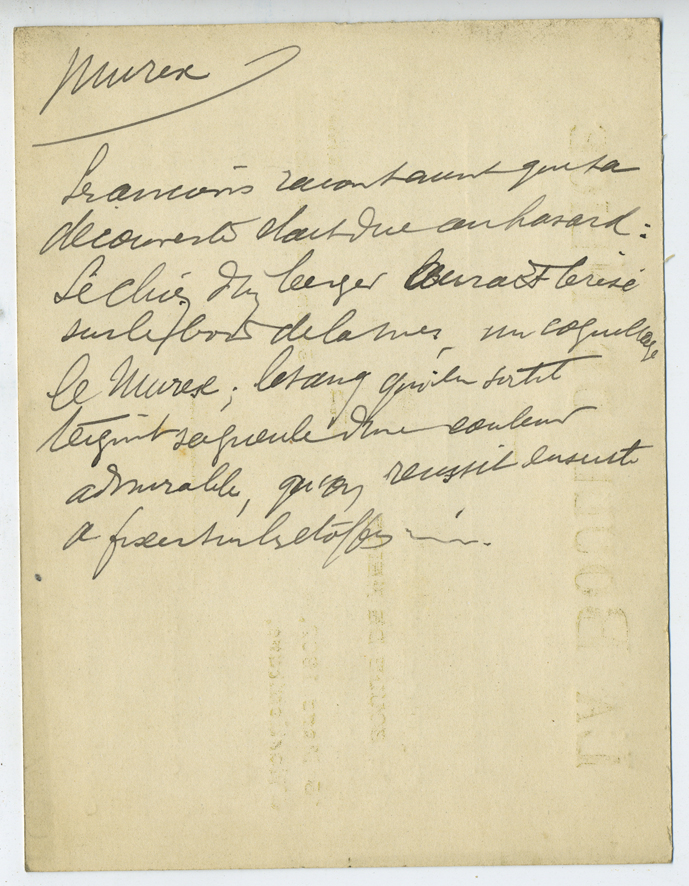 Murex
Les anciens racontaient que sa
découverte était due au hasard :
Le chien d'un berger aurait brisé
sur le bord de la mer, un coquillage
le Murex ; le sang qui en sortit
teignit sa gueule d'une couleur
admirable, qu'on réussit ensuite
a fixer sur les étoffes
LA BOU